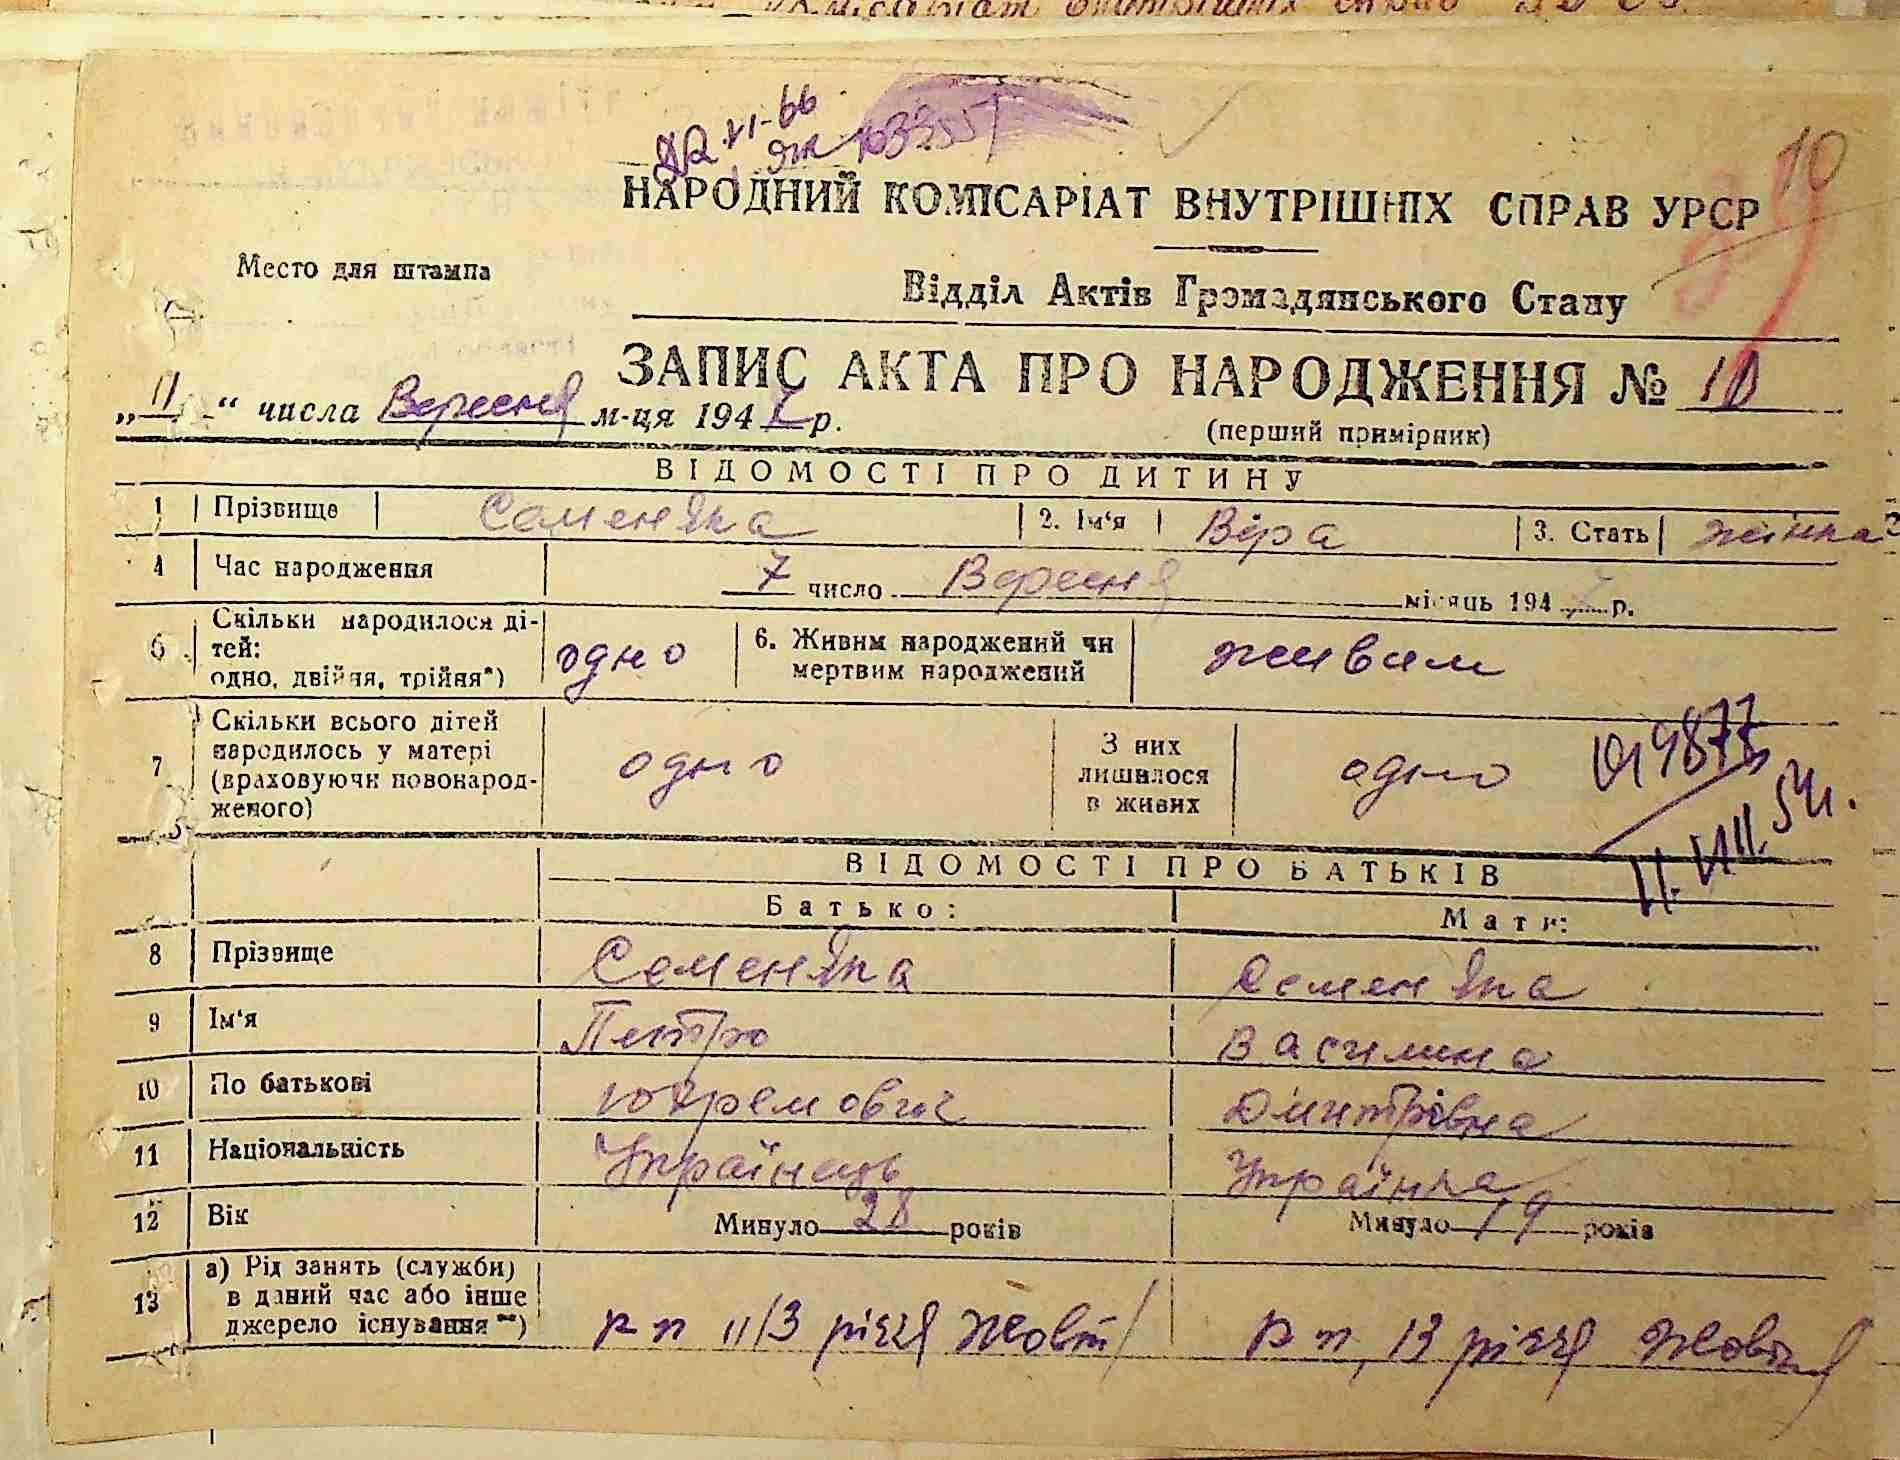 НАРОДНИЙ КОМІСАРІАТ ВНУТРІШНІХ СПРАВ УРСР
10
Место для штампа
Відділ Актів Громадянського Стану
ЗАПИС АКТА ПРО НАРОДЖЕННЯ № 10
„11“ числа Вересня м-ця 1947 р.
(перший примірник)
ВІДОМОСТІ ПРО ДИТИНУ
1 Прізвище Семеняка 2. Ім'я Віра 3. Стать жінка
4 Час народження 7 число Вересня місяць 1947 р.
5 Скільки народилося ді-
тей:
одно, двійня, трійня*) одно 6. Живим народжений чи
мертвим народжений живим
7 Скільки всього дітей
народилось у матері
(враховуючи новонарод-
женого) одно З них
лишилося
в живих одно
ВІДОМОСТІ ПРО БАТЬКІВ
Батько: Мати:
8 Прізвище Семеняка Семеняка
9 Ім'я Петро Василина
10 По батькові Юхремович Дмитрівна
11 Національність Українець Українка
12 Вік Минуло 28 років Минуло 19 років
13 а) Рід занять (служби)
в даний час або інше
джерело існування**) к п 13 річчя Жовт к п, 13 річчя Жовтня